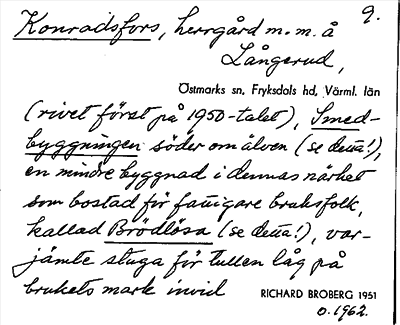 9.
Konradsfors, herrgård m.m. å
Långerud,
Östmarks sn, Fryksdals hd, Värml. län
(rivet först på 1950-talet), Smed-
byggningen söder om älven (se detta!),
en mindre byggnad i dennas närhet
som bostad för fattigare bruksfolk,
kallad Brödlösa (se detta!), var-
jämte stuga för tullen låg på
brukets mark invid
RICHARD BROBERG 1951
o. 1962.